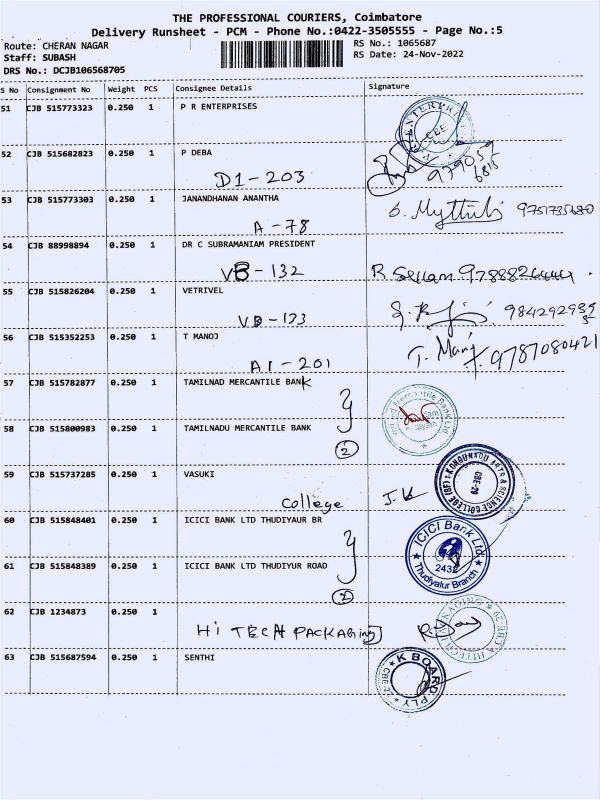 THE PROFESSIONAL COURIERS, Coimbatore
Delivery Runsheet - PCM - Phone No.:0422-3505555 - Page No.:5
Route: CHERAN NAGAR RS No.: 1065687
Staff: SUBASH RS Date: 24-Nov-2022
DRS No.: DCJB106568705
S No Consignment No Weight PCS Consignee Details Signature
51 CJB 515773323 0.250 1 P R ENTERPRISES
CBE
52 CJB 515682823 0.250 1 P DEBA
D1-203
53 CJB 515773303 0.250 1 JANANDHANAN ANANTHA
A-78 9751735680
54 CJB 88998894 0.250 1 DR C SUBRAMANIAM PRESIDENT
VB-132
55 CJB 515826204 0.250 1 VETRIVEL
VB-173
56 CJB 515352253 0.250 1 T MANOJ
A1-201 T. Manoj 9787080421
57 CJB 515782877 0.250 1 TAMILNAD MERCANTILE BANK
58 CJB 515800983 0.250 1 TAMILNADU MERCANTILE BANK
2
59 CJB 515737285 0.250 1 VASUKI
College
60 CJB 515848401 0.250 1 ICICI BANK LTD THUDIYUR BR
ICICI Bank Ltd
61 CJB 515848389 0.250 1 ICICI BANK LTD THUDIYUR ROAD
2432
Thudiyalur Branch
2
62 CJB 1234873 0.250 1
Hi TECH PACKAGING
63 CJB 515687594 0.250 1 SENTHI
K BOARD PLY